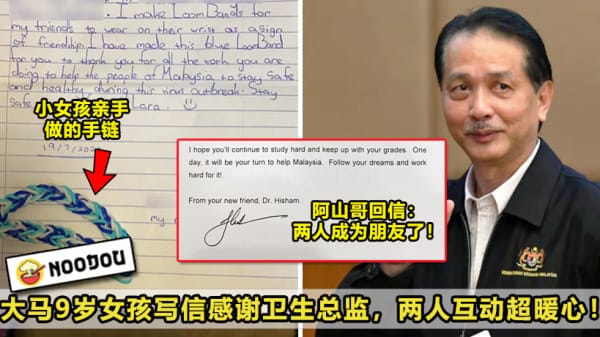 I make LoomBands for
my friends to wear on their wrist as a sign
of friendship. I have made this blue LoomBand
for you to thank you for all the work you are
doing to help the people of Malaysia to stay safe
and healthy during this virus outbreak. Stay
Safe
Lara. ☺
小女孩亲手
做的手链
my
I hope you'll continue to study hard and keep up with your grades. One
day, it will be your turn to help Malaysia. Follow your dreams and work
hard for it!.
From your new friend, Dr. Hisham.
阿山哥回信：
两人成为朋友了！
NOODOU
大马9岁女孩写信感谢卫生总监，两人互动超暖心！